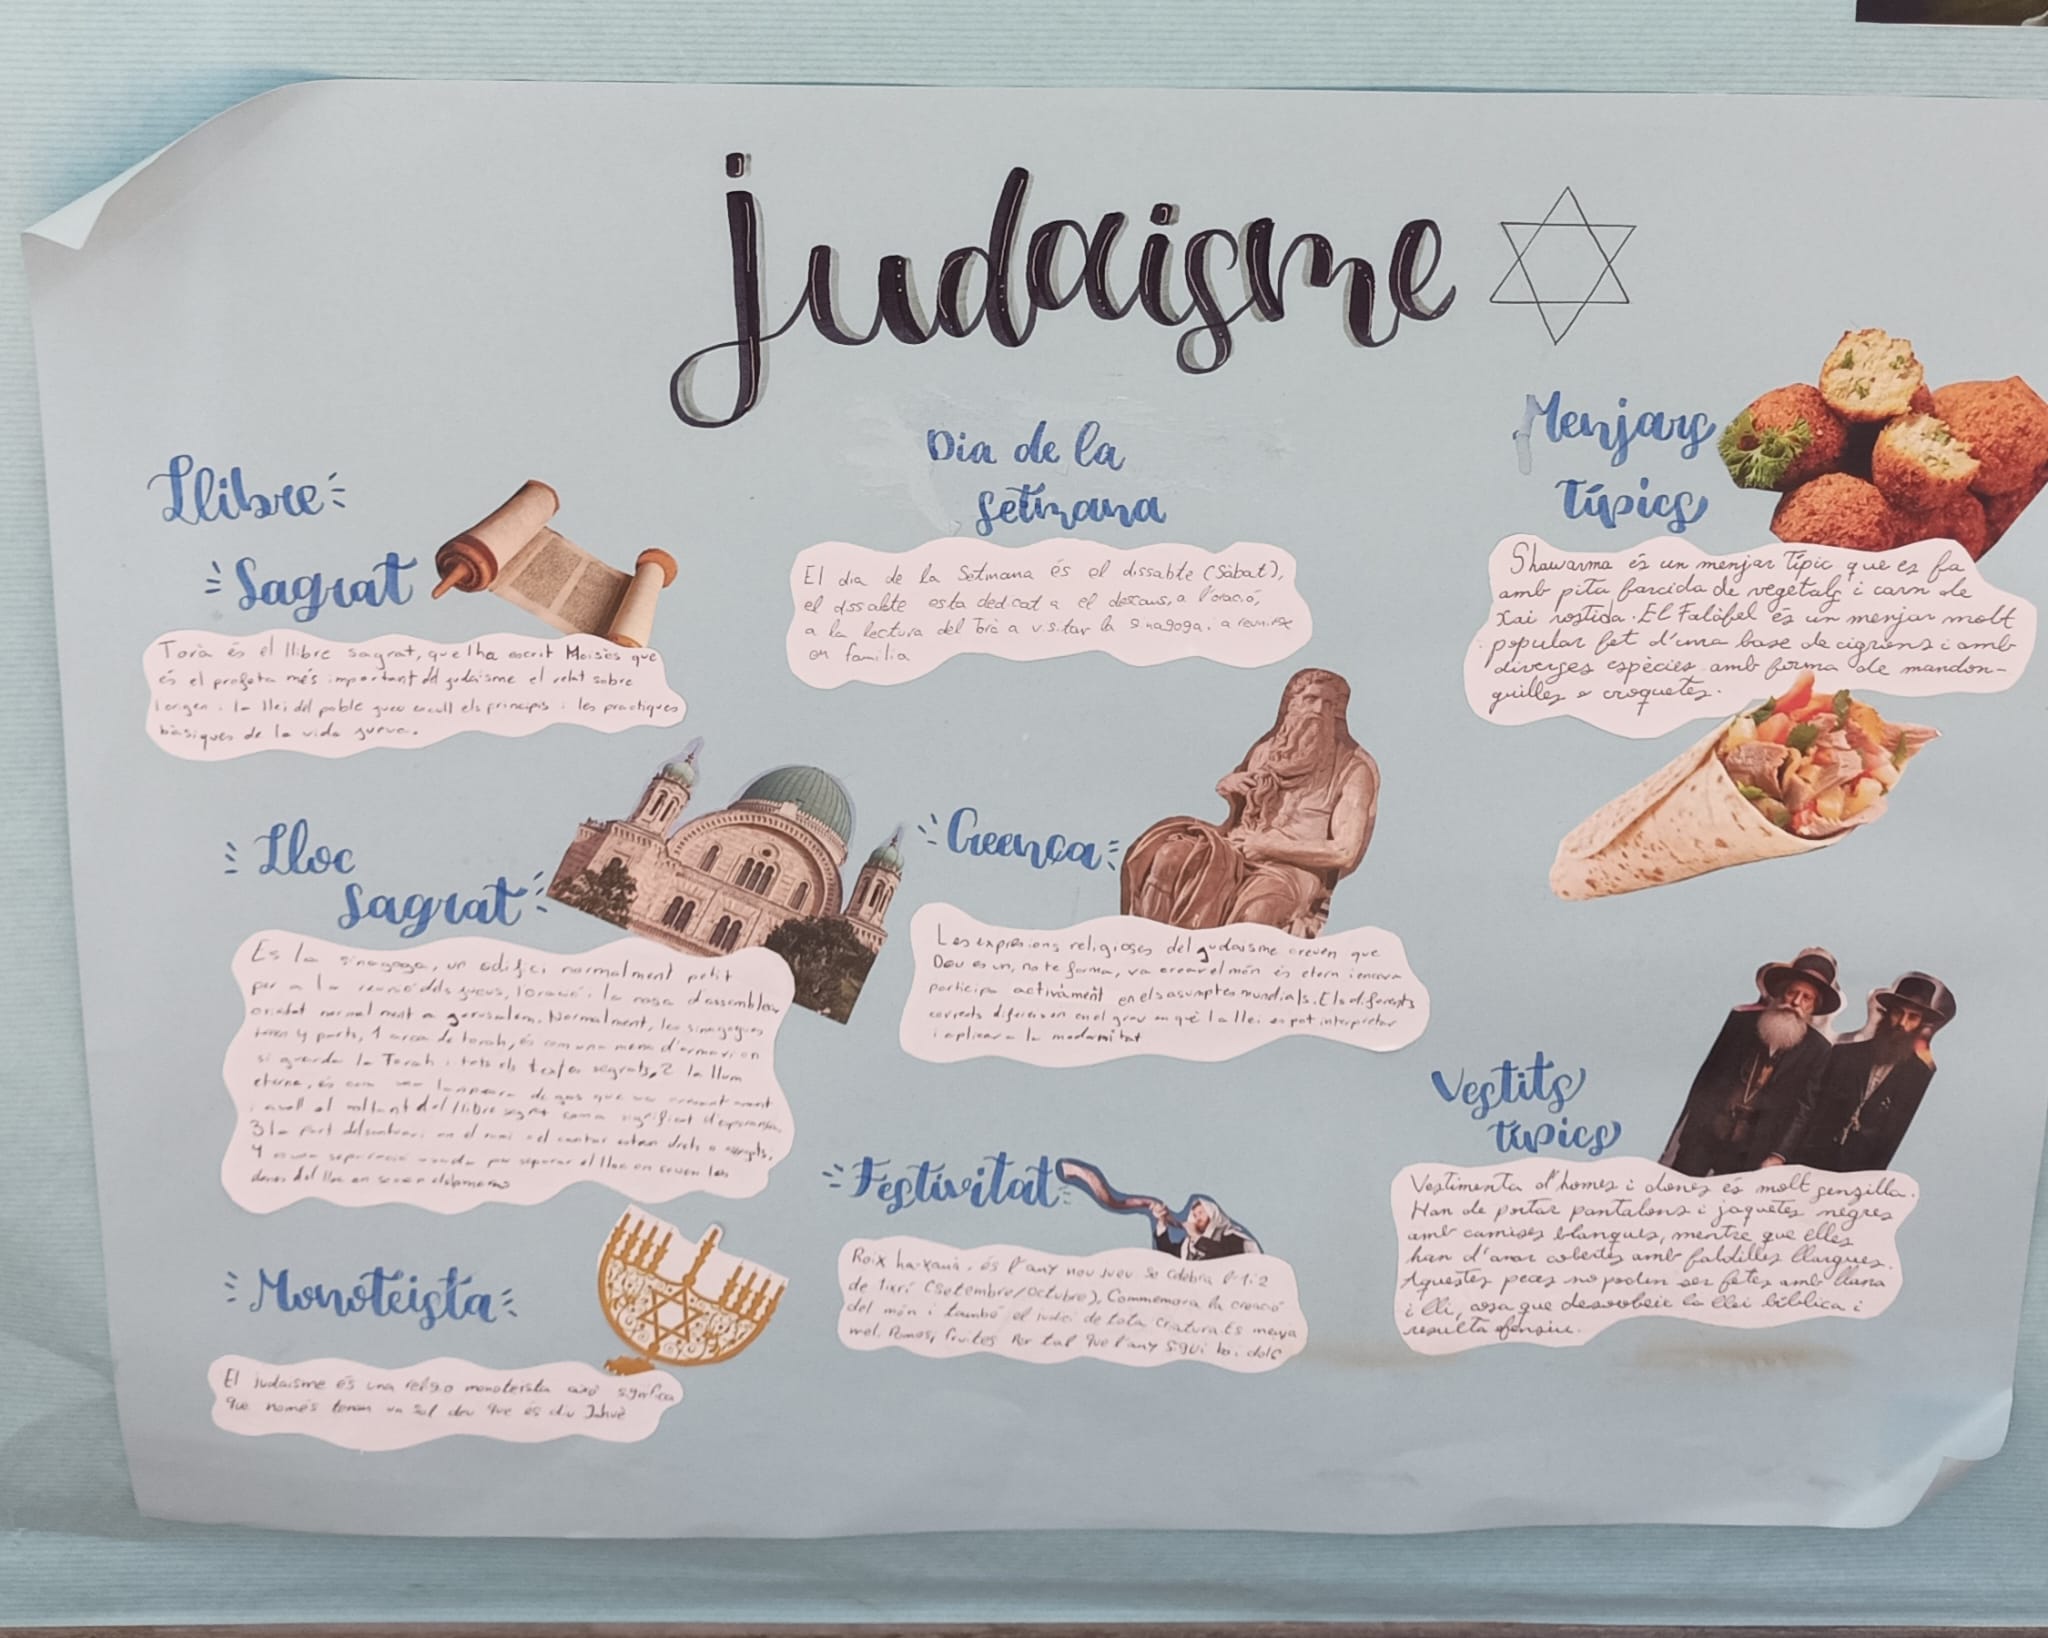 Judaisme
Llibre
Sagrat
Torà és el llibre sagrat, que lha escrit Moisès que
és el profeta més important del judaisme el relat sobre
lorigen i la llei del poble jueu recull els principis i les practiques
bàsiques de la vida jueva.
Dia de la
Setmana
El dia de la Setmana és el dissabte (Sàbat),
el dissabte esta dedicat a el descans, a l'oració,
a la lectura del Torà a visitar la sinagoga i a reunirse
en familia
Menjars
Típics
Shawarma és un menjar típic que es fa
amb pita farcida de vegetals i carn de
xai rostida. El Falàfel és un menjar molt
popular fet d'una base de cigrons i amb
diverses espècies amb forma de mandon-
guilles o croquetes.
Lloc
Sagrat
Es la sinagoga, un edifici normalment petit
per a la reunió dels jueus, loració i la casa d'assemblea
orientat normalment a jerusalem. Normalment, les sinagogues
tenen 4 parts, 1 arca de torah, és com una mena d'armari on
si guarda la Torah i tots els textos sagrats, 2 la llum
eterna, és com una lampara de gas que
i avall el voltant del llibre sagrat com a significat d'esperança,
3 la part del santuari on el i el cantor estan drets o
4 una separació per separar el lloc on seuen les
dones del lloc on seuen els homens
Creença
Les expresions religioses del judaisme creuen que
Deu es un, no te forma, va crear el món és etern i encara
participa activament en els asumptes mundials. Els diferents
corrents difereixen en el grau en què la llei es pot interpretar
i aplicar a la modernitat
Vestits
típics
Vestimenta d'homes i dones és molt senzilla.
Han de portar pantalons i jaquetes negres
amb camises blanques, mentre que elles
han d'anar cobertes amb faldilles llargues.
Aquestes peces no poden ser fetes amb llana
i lli, cosa que desobeix la llei bíblica i
resulta ofensiu.
Festivitat
Roix ha-xanà, és l'any nou jueu se celebra l'1 i 2
de tixrí (setembre/octubre), Commemora la creació
del món i també el judici de tota criatura Es menja
mel. Pomes, fruites Per tal que l'any sigui bo i dolç
Monoteista
El judaisme és una religo monoteista això significa
que només tenen un sol deu que és diu Jahvè